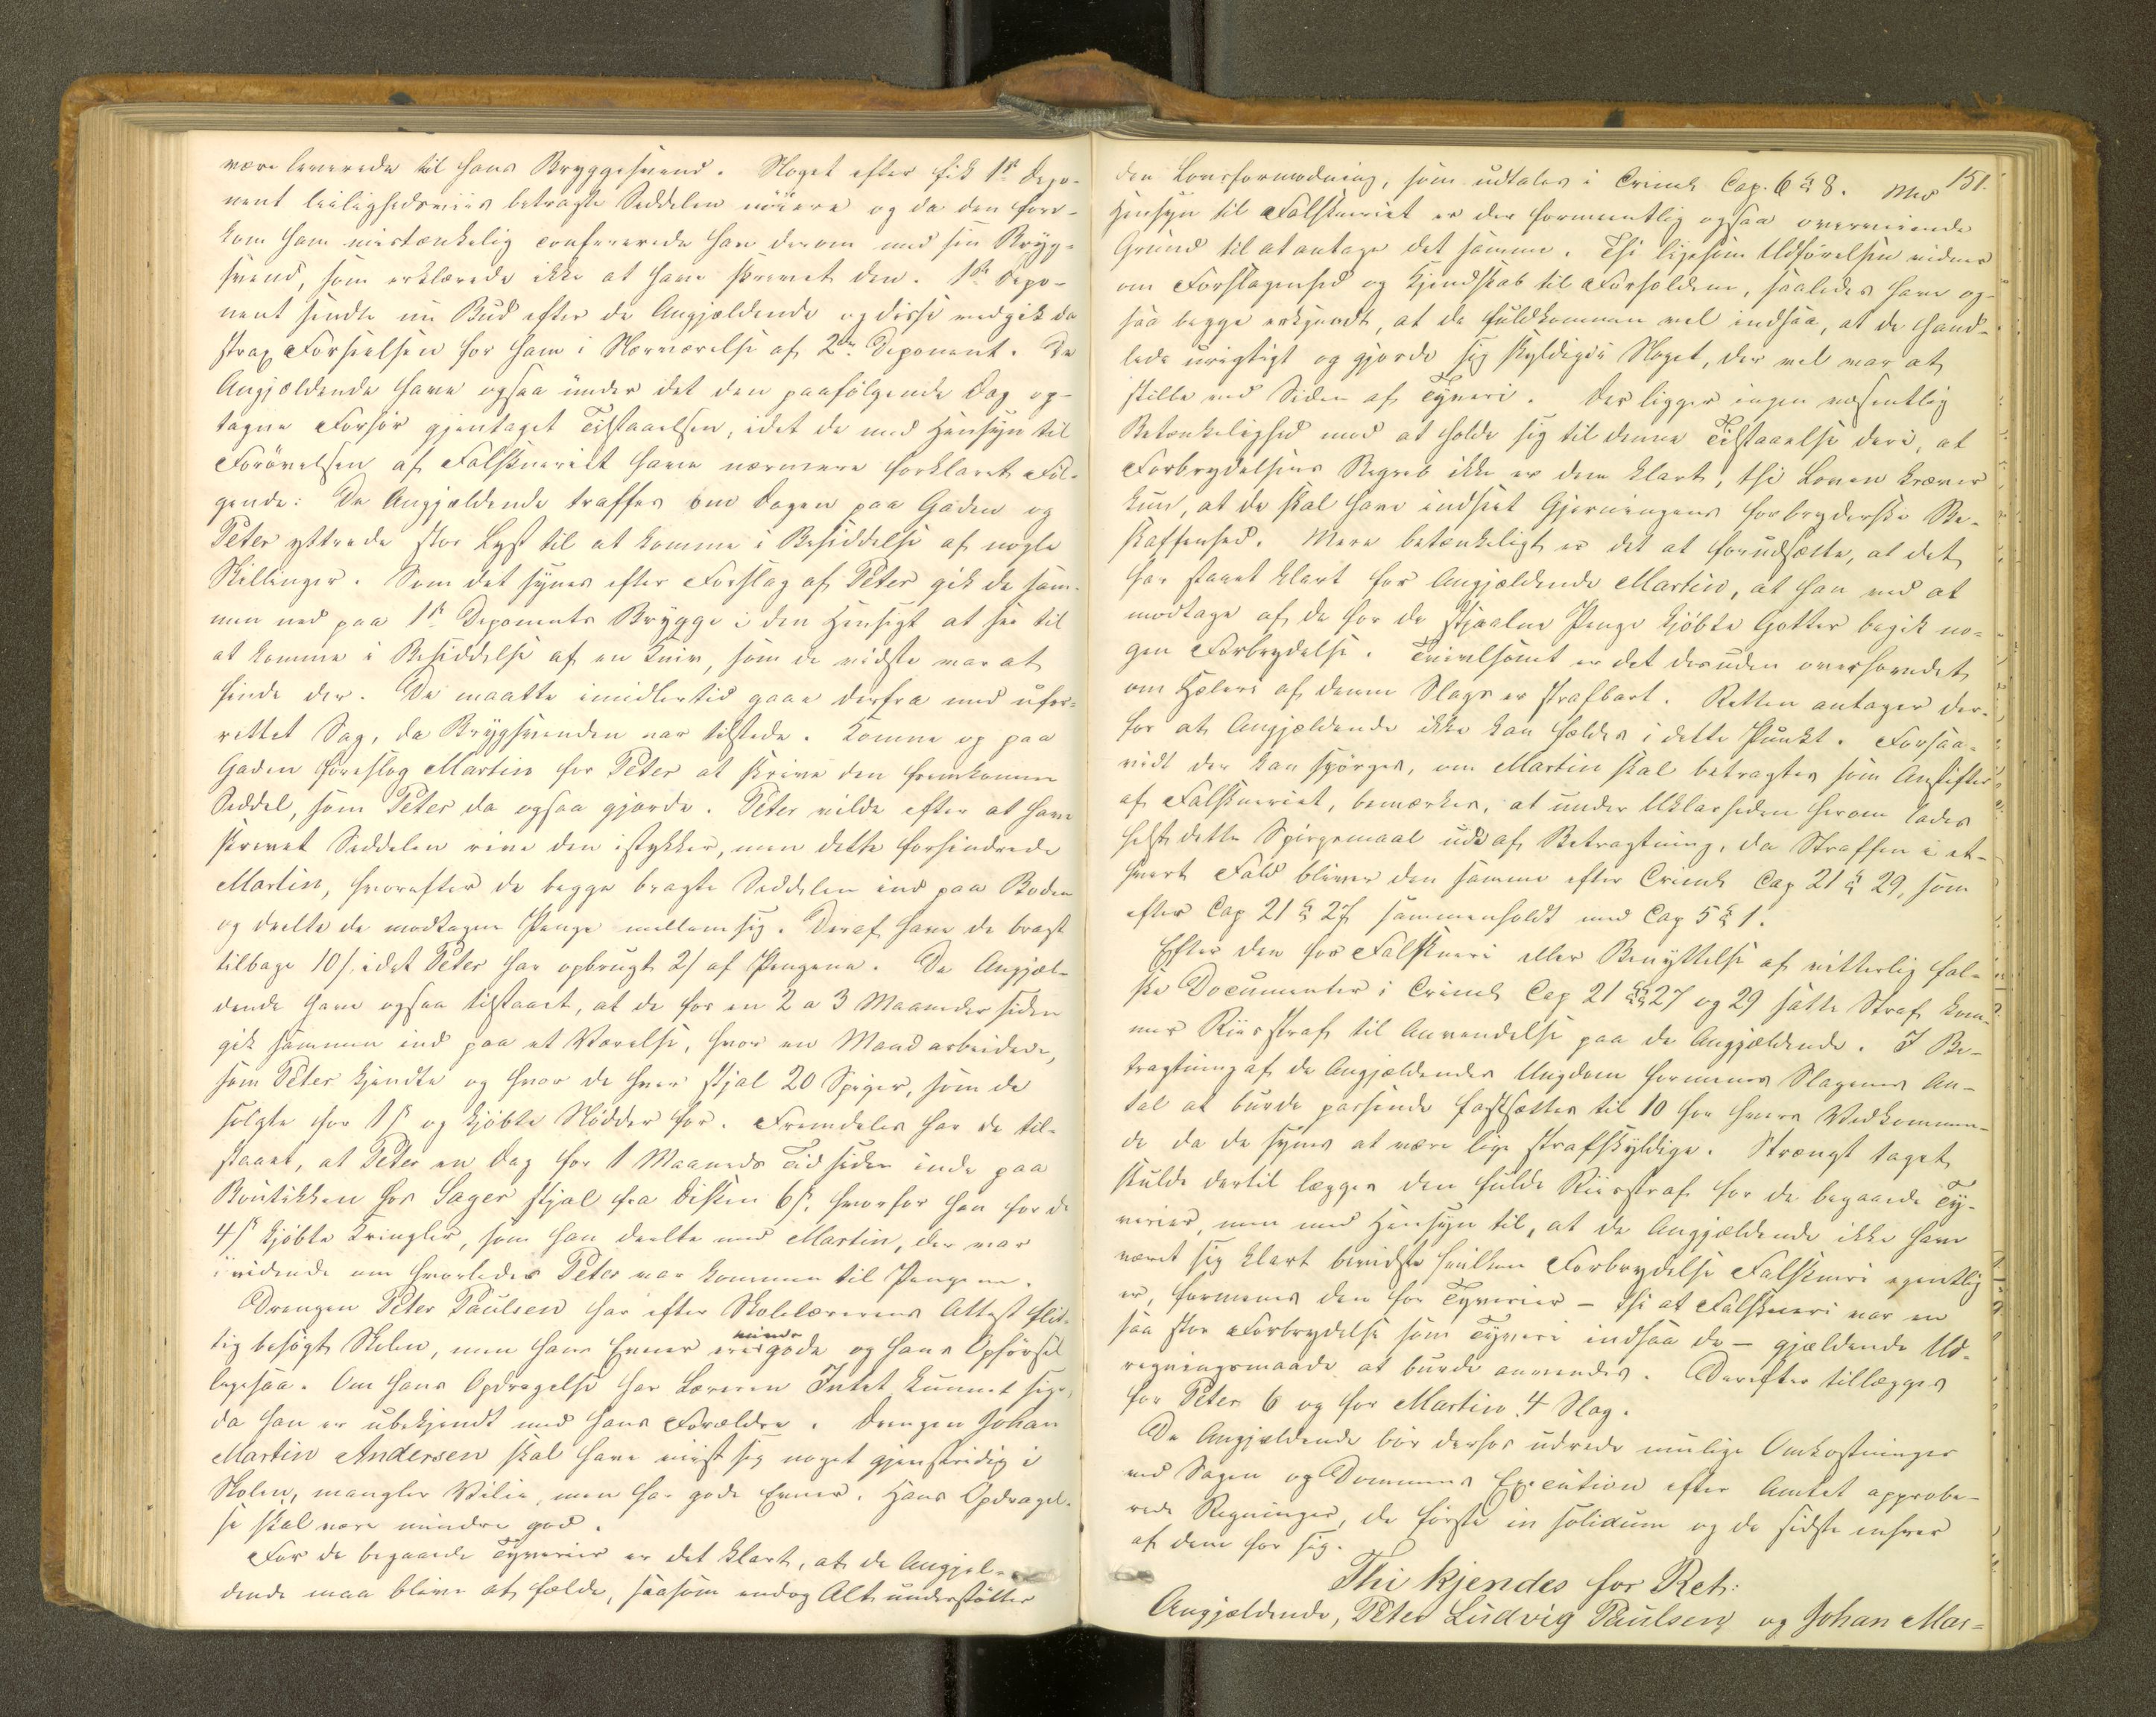 være leverede til hans Bryggesvend. Noget efter fik 1ste Depo-
nent leilighedsviis betragte Seddelen nöiere og da den fore-
kom ham mistænkelig confererede han derom med sin Bryg-
svend, som erklærede ikke at have skrevet den. 1ste Depo-
nent sendte nu Bud efter de Angjældende og disse vedgik da
strax Forseelsen for ham i Nærværelse af 2den Deponent. De
Angjældende have ogsaa under det den paafølgende Dag op-
tagne Forhör gjentaget Tilstaaelsen, idet de med Hensyn til
Forövelsen af Falskneriet have nærmere forklaret Føl-
gende: De Angjældende traffes om Dagen paa Gaden og
Peter yttrede stor Lyst til at komme i Besiddelse af nogle
Skillinger. Som det synes efter Forslag af Peter gik de sam-
men ned paa 1ste Deponents Brygge i den Hensigt at see til
at komme i Besiddelse af en Kniv, som de vidste var at
finde der. De maatte imidlertid gaae derfra med ufor-
rettet Sag, da Brygsvenden var tilstede. Komne op paa
Gaden foreslog Martin for Peter at skrive den fremkomne
Seddel, som Peter da ogsaa gjorde. Peter vilde efter at have
skrevet Seddelen rive den istykker, men dette forhindrede
Martin, hvorefter de begge bragte Seddelen ind paa Boden
og deelte de modtagne Penge mellem sig. Deraf have de bragt
tilbage 10 ß, idet Peter har opbrugt 2 ß af Pengene. De Angjæl-
dende have ogsaa tilstaaet, at de for en 2 a 3 Maaneder siden
gik sammen ind paa et Værelse, hvor en Mand arbeidede,
som Peter kjendte og hvor de hver stjal 20 Spiger, som de
solgte for 1 ß og kjöbte Nödder for. Fremdeles har de til-
staaet, at Peter en Dag for 1 Maaneds Tid siden inde paa
Boutikken hos Sager stjal fra Disken 6 ß, hvorfor han for de
4 ß kjöbte Kringler, som han deelte med Martin, der var
ividende om hvorledes Peter var kommen til Pengene.
Drengen Peter Paulsen har efter Skolelærerens Attest flit-
tig besögt Skolen, men hans Evner ere mindre gode og hans Opførsel
ligesaa. Om hans Opdragelse har Læreren Intet kunnet sige,
da han er ubekjendt med hans Forældre. Drengen Johan
Martin Andersen skal have viist sig noget gjenstridig i
Skolen, mangler Villie, men har gode Evner. Hans Opdragel-
se skal være mindre god.
For de begaaede Tyverier er det klart, at de Angjæl-
dende maa blive at fælde, saasom endog Alt understötter
151.
den Lovsformodning, som udtales i Criml. Cap. 6 § 8. Med
Hensyn til Falskneriet er der formentlig ogsaa overveiende
Grund til at antage det samme. Thi ligesom Udførelsen vidner
om Forslagenhed og Kjendskab til Forholdene, saaledes have og-
saa begge erkjendt, at de fuldkommen vel indsaa, at de hand-
lede urigtigt og gjorde sig skyldige i Noget, der vel var at
stille ved Siden af Tyveri. Der ligger ingen væsentlig
Betænkelighed mod at holde sig til denne Tilstaaelse deri, at
Forbrydelsens Begreb ikke er dem klart, thi Loven kræver
kun, at de skal have indseet Gjerningens forbryderske Be-
skaffenhed. Mere betænkeligt er det at forudsætte, at det
har staaet klart for Angjældende Martin, at han ved at
modtage af de for de stjaalne Penge kjöbte Gotter begik no-
gen Forbrydelse. Tvivlsomt er det desuden overhovedet,
om Hæleri af denne Slags er strafbart. Retten antager der-
for at Angjældende ikke kan fældes i dette Punkt. Forsaa-
vidt der kan spörges, om Martin skal betragtes som Anstifter
af Falskneriet, bemærkes, at under Uklarheden herom lades
helst dette Spörgsmaal ude af Betragtning, da Straffen i et-
hvert Fald bliver den samme efter Criml. Cap 21 § 29, som
efter Cap 21 § 27 sammenholdt med Cap 5 § 1.
Efter den for Falskneri eller Benyttelse af vitterlig fal-
ske Documenter i Criml. Cap 21 §§ 27 og 29 satte Straf kom-
mer Riisstraf til Anvendelse paa de Angjældende. I Be-
tragtning af de Angjældendes Ungdom formenes Slagenes An-
tal at burde passende fastsættes til 10 for hver Vedkommen-
de da de synes at være lige strafskyldige. Strængt taget
skulde dertil lægges den fulde Riisstraf for de begaaede Ty-
verier, men med Hensyn til, at de Angjældende ikke have
været sig klart bevidste hvilken Forbrydelse Falskneri egentlig
er, formenes den for Tyverier – thi at Falskneri var en
saa stor Forbrydelse som Tyveri indsaa de – gjældende Ud-
regningsmaade at burde anvendes. Derefter tillægges
for Peter 6 og for Martin 4 Slag.
De Angjældende bör derhos udrede mulige Omkostninger
ved Sagen og Dommens Execution efter Amtet approbe-
rede Regninger, de förste in solidum og de sidste enhver
af dem for sig.
Thi kjendes for Ret:
Angjældende, Peter Ludvig Paulsen og Johan Mar-